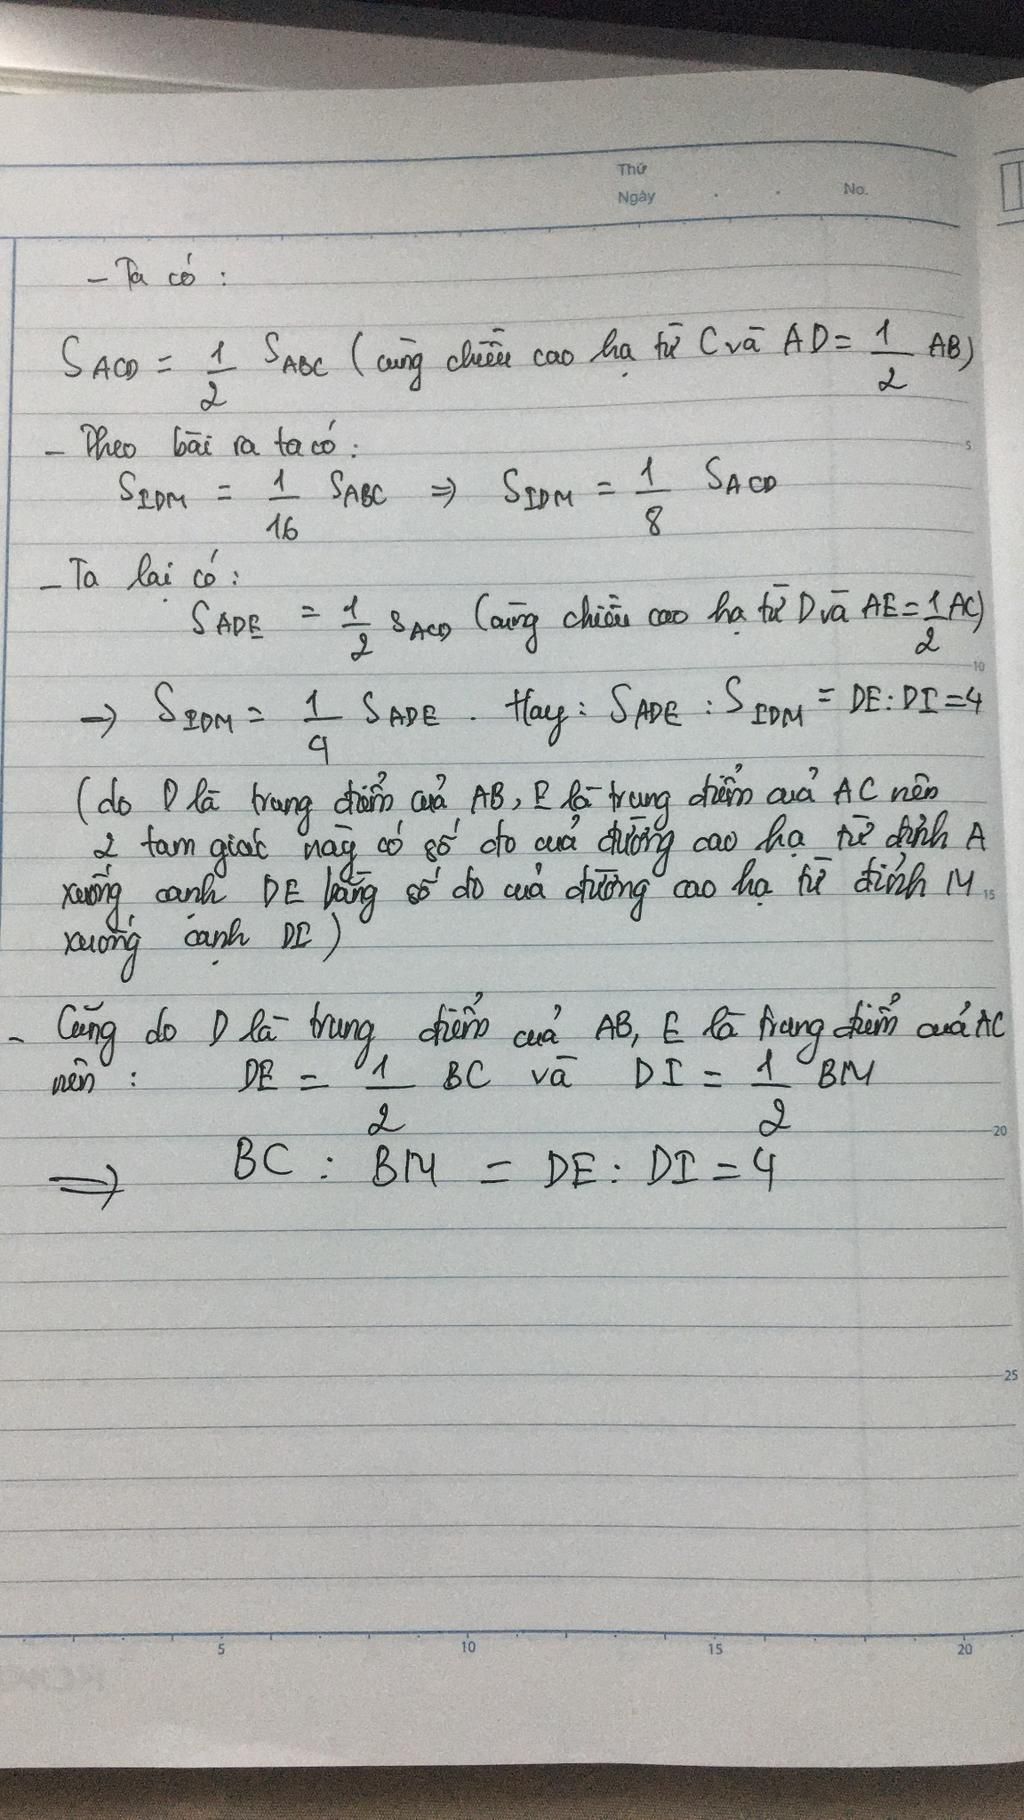 Thứ
Ngày . . No.
- Ta có :
S ACD = 1/2 S ABC ( cùng chiều cao hạ từ C và AD = 1/2 AB)
- Theo bài ra ta có :
S IDM = 1/16 S ABC => S IDM = 1/8 S ACD
- Ta lại có :
S ADE = 1/2 S ACD (cùng chiều cao hạ từ D và AE = 1/2 AC)
-> S IDM = 1/4 S ADE . Hay : S ADE : S IDM = DE : DI = 4
( do D là trung điểm của AB, E là trung điểm của AC nên
2 tam giác này có số đo của đường cao hạ từ đỉnh A
xuống cạnh DE bằng số đo của đường cao hạ từ đỉnh M
xuống cạnh DI )
- Cũng do D là trung điểm của AB, E là trung điểm của AC
nên : DE = 1/2 BC và DI = 1/2 BM
=> BC : BM = DE : DI = 4
5
10
15
20
25
5 10 15 20